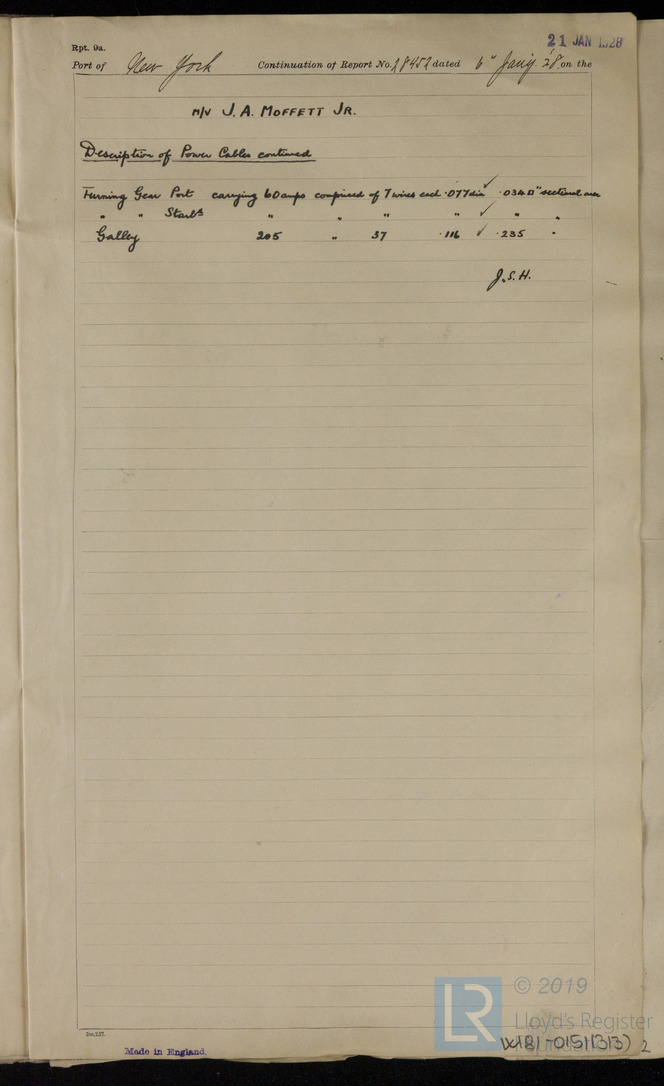 Rpt. 9a.
21 JAN 1928
Port of New York Continuation of Report No. 28452 dated 6th Jan'y. '28. on the
M/V J. A. MOFFETT JR.
Description of Power Cables continued
Turning Gear Port carrying 60 amps comprised of 7 wires each .077 dia ✓ .034 □" sectional area
" " Starbd " " " " ✓ " "
Galley 205 " 37 .116 ✓ .235 "
J.S.H.
© 2019
LR Lloyd's Register
Foundation
W181-0151(3/3) 2
Made in England.